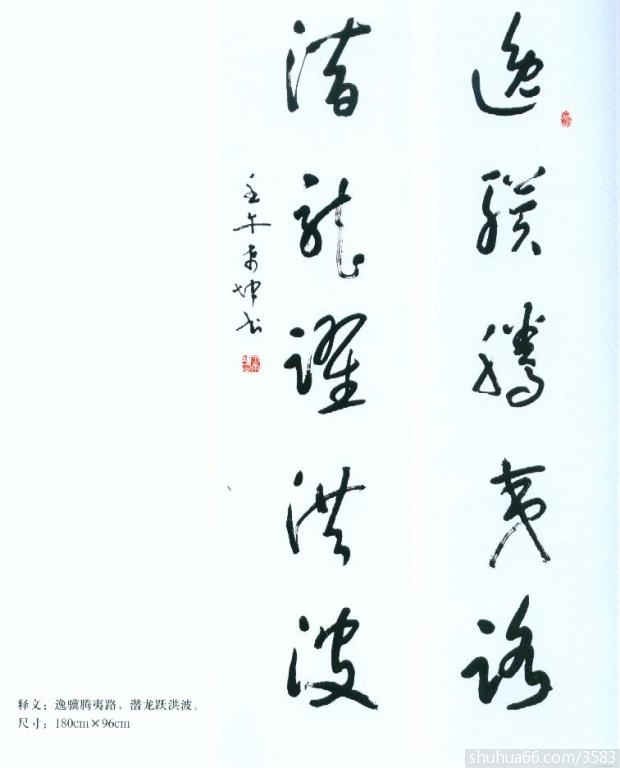 逸驥騰夷路
潛龍躍洪波
壬午 坤书
释文：逸骥腾夷路、潜龙跃洪波。
尺寸：180cm×96cm
shuhua66.com/3583